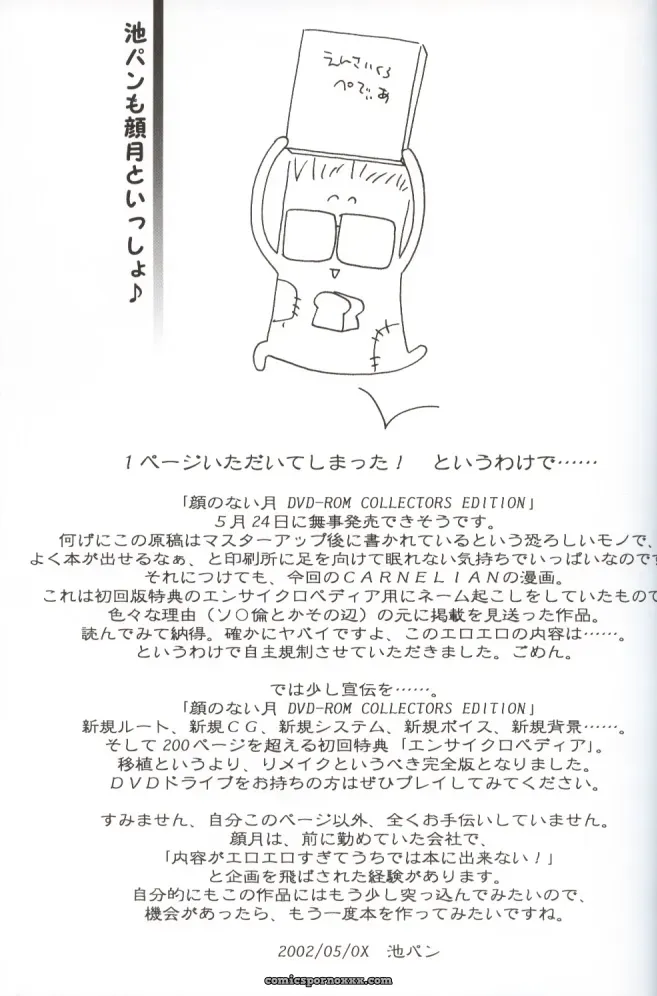 池パンも顔月といっしょ♪
えんさいくろ
ぺでぃあ
1ページいただいてしまった！　というわけで……
「顔のない月 DVD-ROM COLLECTORS EDITION」
5月24日に無事発売できそうです。
何げにこの原稿はマスターアップ後に書かれているという恐ろしいモノで、
よく本が出せるなぁ、と印刷所に足を向けて眠れない気持ちでいっぱいなのです
それにつけても、今回のＣＡＲＮＥＬＩＡＮの漫画。
これは初回版特典のエンサイクロペディア用にネーム起こしをしていたもので
色々な理由（ソ○倫とかその辺）の元に掲載を見送った作品。
読んでみて納得。確かにヤバイですよ、このエロエロの内容は……。
というわけで自主規制させていただきました。ごめん。
では少し宣伝を……。
「顔のない月 DVD-ROM COLLECTORS EDITION」
新規ルート、新規ＣＧ、新規システム、新規ボイス、新規背景……。
そして200ページを超える初回特典「エンサイクロペディア」。
移植というより、リメイクというべき完全版となりました。
ＤＶＤドライブをお持ちの方はぜひプレイしてみてください。
すみません、自分このページ以外、全くお手伝いしていません。
顔月は、前に勤めていた会社で、
「内容がエロエロすぎてうちでは本に出来ない！」
と企画を飛ばされた経験があります。
自分的にもこの作品にはもう少し突っ込んでみたいので、
機会があったら、もう一度本を作ってみたいですね。
2002/05/0X　池パン
comicspornoxxx.com